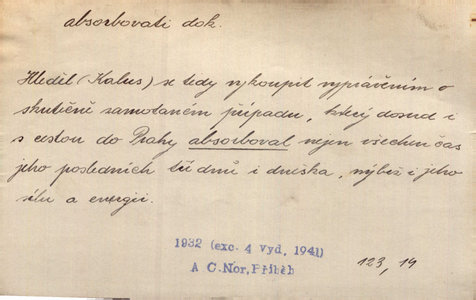 absorbovati dok.
Hleděl (Kalus) se tedy vykoupit vyprávěním o
skutečně zamotaném případu, který dosud i
s cestou do Prahy absorboval nejen všechen čas
jeho posledních tří dnů i dneška, nýbrž i jeho
sílu a energii.
1932 (exc. 4 vyd, 1941)
A C.Nor, Příběh
123, 19